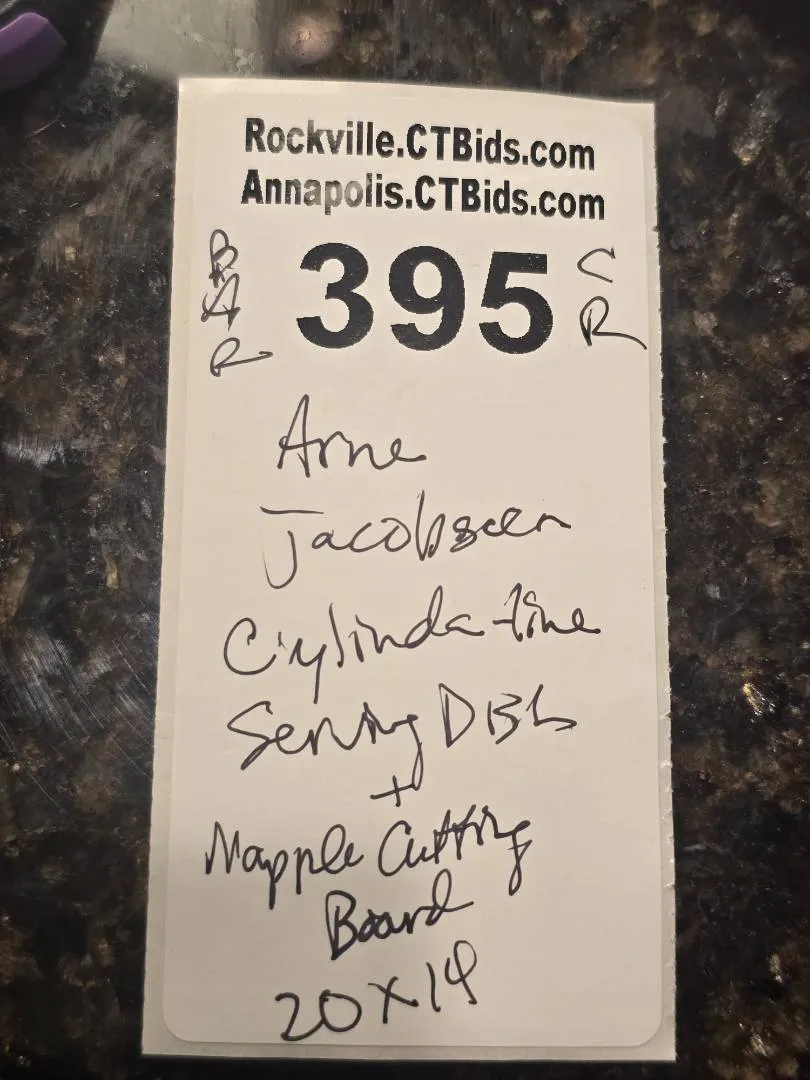 Rockville.CTBids.com
Annapolis.CTBids.com
BAR 395 CR
Arne
Jacobseen
Cylinda-line
Serving Dish
+
Mapple Cutting
Board
20x14